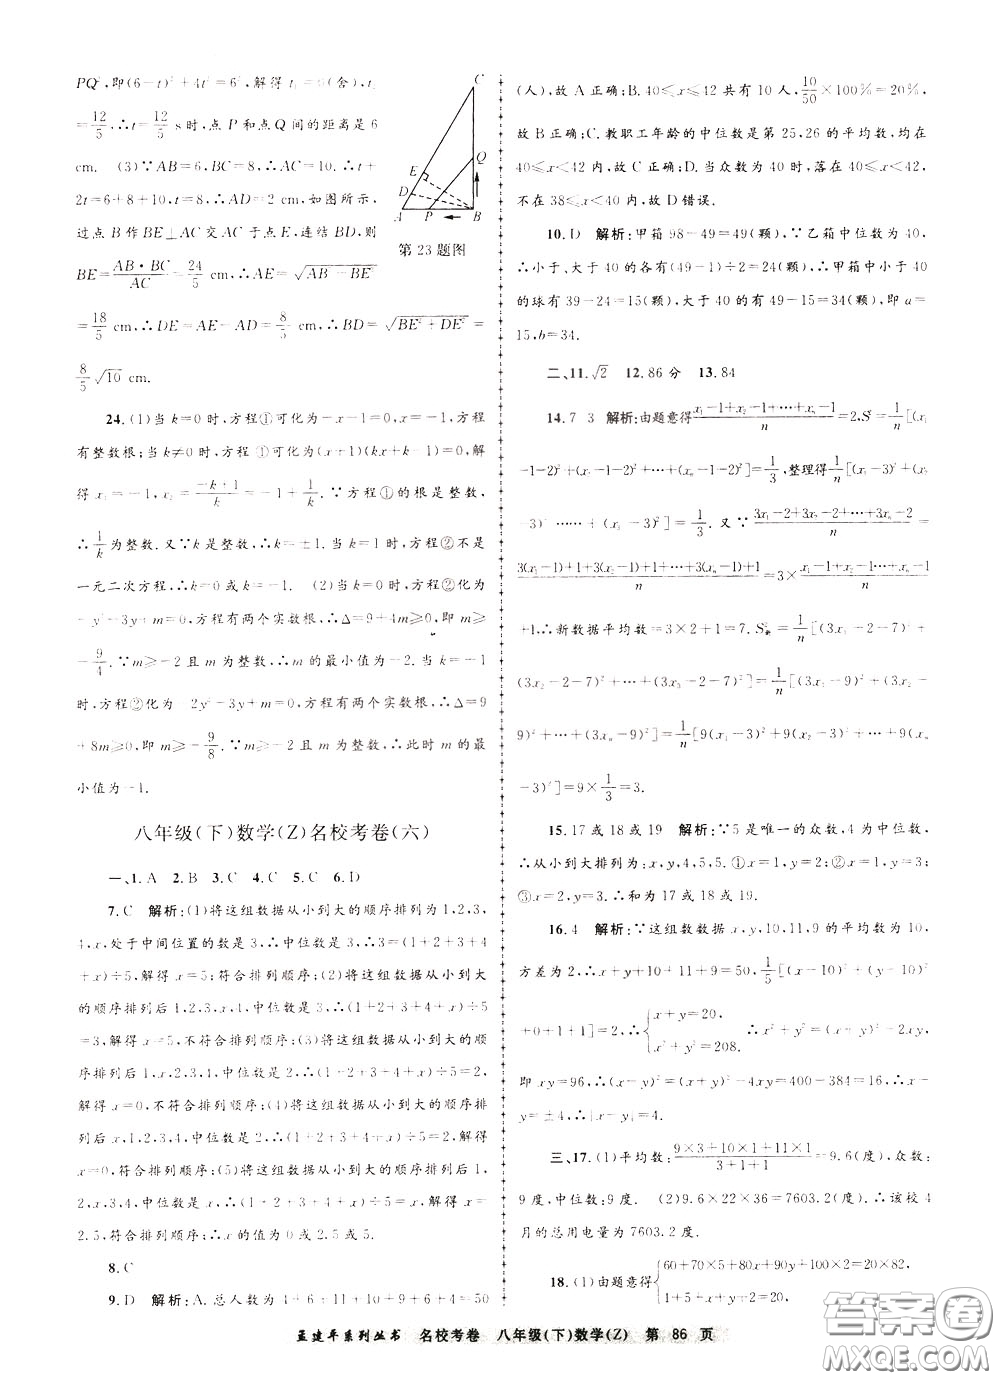 PQ²,即(6-t)²+4t²=6²,解得t₁=0(舍),t₂
=12/5,∴t=12/5 s时,点P和点Q间的距离是6
cm. (3)∵AB=6,BC=8,∴AC=10.∴t+
2t=6+8+10,∴t=8,∴AD=2 cm,如图所示,
过点B作BE⊥AC交于点E,连结BD,则
BE=AB·BC/AC=24/5 cm,∴AE=√(AB²-BE²)
=18/5 cm,∴DE=AE-AD=8/5 cm,∴BD=√(BE²+DE²)=
8/5√10 cm.
C
Q
E
D
A P B
第23题图
24.(1)当k=0时,方程①可化为-x-1=0,x=-1,方程
有整数根;当k≠0时,方程①可化为(x+1)(kx+k-1)=0,解
得x₁=-1,x₂=(-k+1)/k=-1+1/k.∵方程①的根是整数,
∴1/k为整数.又∵k是整数,∴k=±1.∵此时,方程②不是
一元二次方程,∴k=0或k=-1. (2)当k=0时,方程②化为
-y²-3y+m=0,方程有两个实数根,∴Δ=9+4m≥0,即m≥
-9/4.∵m≥-2且m为整数,∴m的最小值为-2.当k=-1
时,方程②化为-2y²-3y+m=0,方程有两个实数根,∴Δ=9
+8m≥0,即m≥-9/8.∵m≥-2且m为整数,∴此时m的最
小值为-1.
八年级(下)数学(Z)名校考卷(六)
一、1.A 2.B 3.C 4.C 5.C 6.D
7.C 解析:(1)将这组数据从小到大的顺序排列为1,2,3,
4,x,处于中间位置的数是3,∴中位数是3,∴(1+2+3+4
+x)÷5=3,解得x=5;符合排列顺序;(2)将这组数据从小到大的
顺序排列后1,2,3,x,4,中位数是3,∴(1+2+3+4+x)÷5
=3,解得x=5,不符合排列顺序;(3)将这组数据从小到大的顺
序排列后1,x,2,3,4,中位数是2,∴(1+2+3+4+x)÷5=2,
解得x=0,不符合排列顺序;(4)将这组数据从小到大的顺序排
列后x,1,2,3,4,中位数是2,∴(1+2+3+4+x)÷5=2,解得
x=0,符合排列顺序;(5)将这组数据从小到大的顺序排列后1,
2,x,3,4,中位数x,∴(1+2+3+4+x)÷5=x,解得x=
2.5,符合排列顺序;∴x的值为0或2.5或5.
8.C
9.D 解析:A.总人数为4+6+11+10+9+6+4=50
(人),故A正确;B.40≤x≤42共有10人,10/50×100%=20%,
故B正确;C.教职工年龄的中位数是第25,26的平均数,均在
40≤x≤42内,故C正确;D.当众数为40时,落在40≤x≤42,
不在38≤x≤40内,故D错误.
10.D 解析:甲箱98-49=49(颗),∵乙箱中位数为40,
∴小于、大于40的各有(49-1)÷2=24(颗),∴甲箱中小于40
的球有39-24=15(颗),大于40的有49-15=34(颗),即a=
15,b=34.
二、11.√2 12.86分 13.84
14.7 3 解析:由题意得(x₁-1+x₂-1+…+xₙ-1)/n=2,S²=1/n[(x₁
-1-2)²+(x₂-1-2)²+…+(xₙ-1-2)²]=1/3,整理得1/n[(x₁-3)²+(x₂
-3)²……+(xₙ-3)²]=1/3.又∵(3x₁-2+3x₂-2+…+3xₙ-2)/n=
(3(x₁-1)+1+3(x₂-1)+1+…+3(xₙ-1)+1)/n=3×(x₁-1+x₂-1+…+xₙ-1)/n
+1∴新数据平均数=3×2+1=7.S²新=1/n[(3x₁-2-7)²+
(3x₂-2-7)²+…+(3xₙ-2-7)²]=1/n[(3x₁-9)²+(3x₂-
9)²+…+(3xₙ-9)²]=1/n[9(x₁-3)²+9(x₂-3)²+…+9(xₙ
-3)²]=9×1/3=3.
15.17或18或19 解析:∵5是唯一的众数,4为中位数,
∴从小到大排列为:x,y,4,5,5.①x=1,y=2;②x=1,y=3;
③x=2,y=3.∴和为17或18或19.
16.4 解析:∵这组数数据x,y,10,11,9的平均数为10,
方差为2,∴x+y+10+11+9=50,1/5[(x-10)²+(y-10)²
+0+1+1]=2,∴{x+y=20, x²+y²=208. ∴x²+y²=(x+y)²-2xy=208,
即xy=96,∴(x-y)²=(x+y)²-4xy=400-384=16,∴x-
y=±4,∴|x-y|=4.
三、17.(1)平均数:(9×3+10×1+11×1)/(3+1+1)=9.6(度),众数:
9度,中位数:9度. (2)9.6×22×36=7603.2(度).∴该校4
月的总用电量为7603.2度.
18.(1)由题意得{60+70×5+80x+90y+100×2=20×82, 1+5+x+y+2=20,
孟建平系列丛书 名校考卷 八年级(下)数学(Z) 第 86 页
答案圈
MXQE.COM